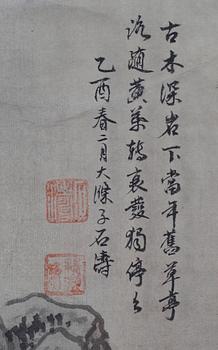 古木深岩下當年舊草亭
沿趟黄葉轉哀鬢獨停々
乙酉春二月大滌子石濤